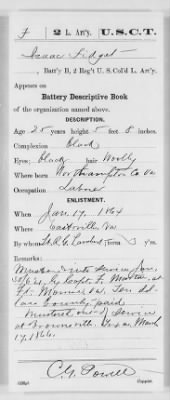 F | 2 L. Art'y. | U.S.C.T.
Isaac Fidget
, Batt'y B, 2 Reg't U. S. Col'd L. Art'y.
Appears on
Battery Descriptive Book
of the organization named above.
DESCRIPTION.
Age 25 years; height 5 feet 8 inches.
Complexion Black
Eyes Black; hair Woolly
Where born Northampton Co Va
Occupation Laborer
ENLISTMENT.
When Jan. 17, 1864
Where Eastville, Va
By whom term 3 y'rs.
Remarks:
Mustered into service Jan.
30/64, by Capt.
Ft. Monroe Va.
County paid
Mustered out of service
at Brownsville, Texas March
17, 1866.
C. G. Powell
Copyist.